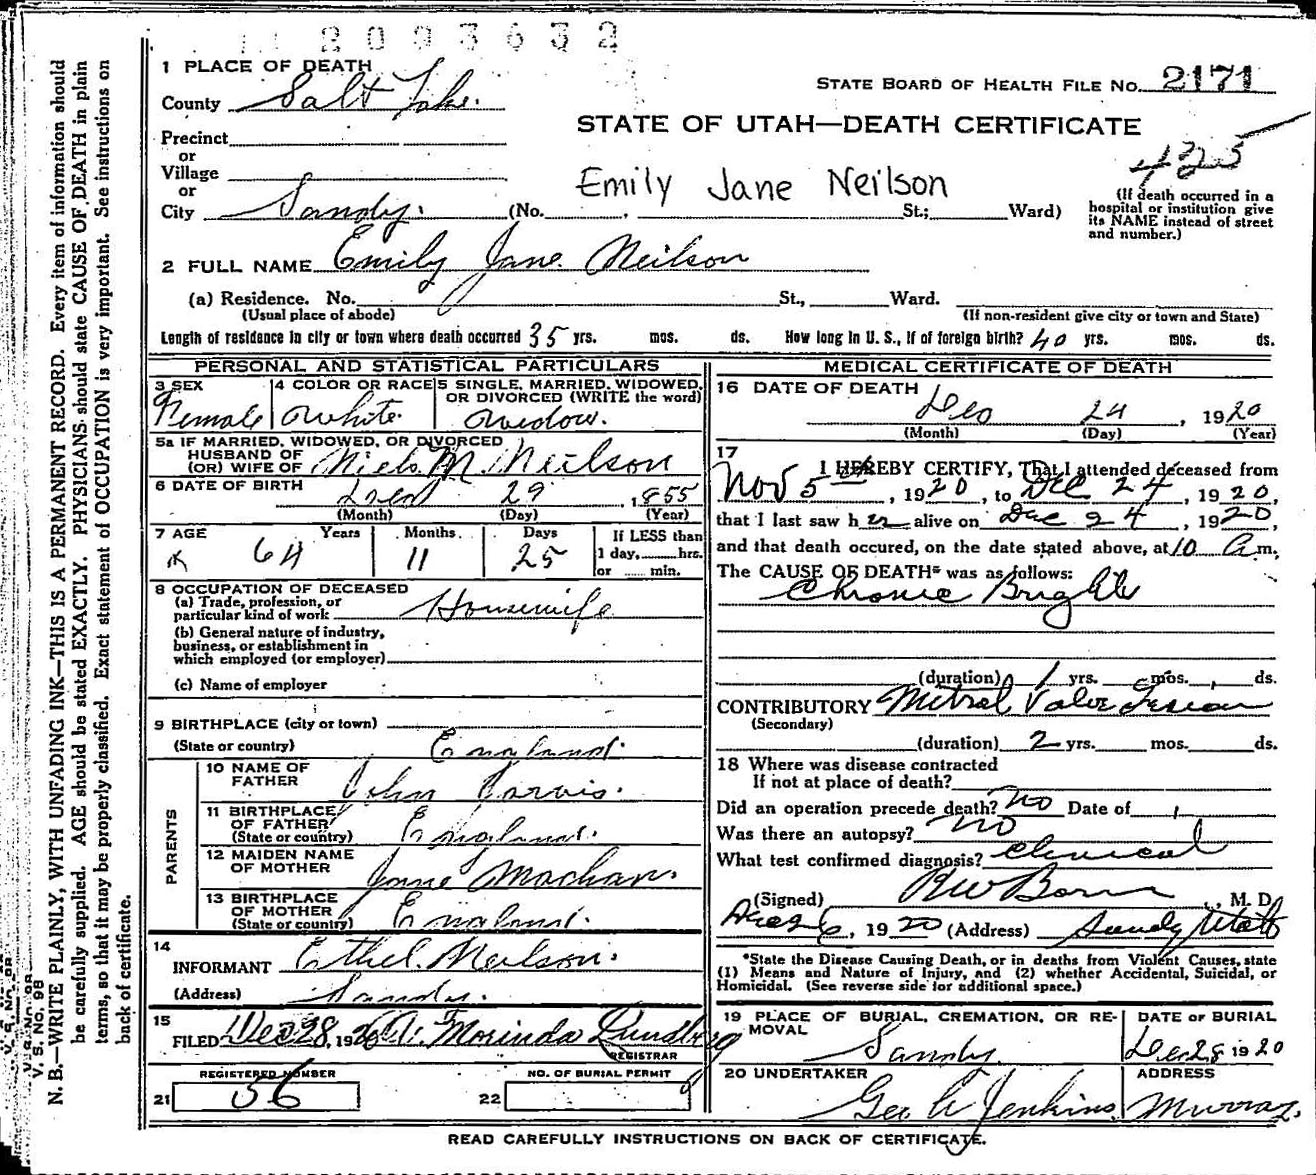 11 2093632
1 PLACE OF DEATH
County Salt Lake.
STATE BOARD OF HEALTH FILE No. 2171
STATE OF UTAH—DEATH CERTIFICATE
425
Precinct
or
Village
or
City Sandy. (No. St.; Ward)
Emily Jane Neilson
(If death occurred in a
hospital or institution give
its NAME instead of street
and number.)
2 FULL NAME Emily Jane Neilson
(a) Residence. No. St., Ward.
(Usual place of abode) (If non-resident give city or town and State)
Length of residence in city or town where death occurred 35 yrs. mos. ds. How long in U. S., if of foreign birth? 40 yrs. mos. ds.
PERSONAL AND STATISTICAL PARTICULARS
3 SEX Female
4 COLOR OR RACE White.
5 SINGLE, MARRIED, WIDOWED,
OR DIVORCED (WRITE the word)
Widow.
5a IF MARRIED, WIDOWED, OR DIVORCED
HUSBAND OF
(OR) WIFE OF Niels M. Neilson
6 DATE OF BIRTH 29, 1855
(Month) (Day) (Year)
7 AGE Years Months Days
64 11 25
If LESS than
1 day, hrs.
or min.
8 OCCUPATION OF DECEASED
(a) Trade, profession, or
particular kind of work Housewife
(b) General nature of industry,
business, or establishment in
which employed (or employer)
(c) Name of employer
9 BIRTHPLACE (city or town)
(State or country) England.
PARENTS
10 NAME OF
FATHER John Jarvis.
11 BIRTHPLACE
OF FATHER
(State or country) England.
12 MAIDEN NAME
OF MOTHER Jane Machan.
13 BIRTHPLACE
OF MOTHER
(State or country) England.
14
INFORMANT Ethel Neilson.
(Address) Sandy.
15
FILED Dec 28, 1920 Morinda Lundberg
REGISTRAR
REGISTERED NUMBER
21 56
NO. OF BURIAL PERMIT
22
MEDICAL CERTIFICATE OF DEATH
16 DATE OF DEATH
Dec 24, 1920
(Month) (Day) (Year)
17
I HEREBY CERTIFY, That I attended deceased from
Nov 5th, 1920, to Dec 24, 1920,
that I last saw her alive on Dec 24, 1920,
and that death occured, on the date stated above, at 10 a.m.
The CAUSE OF DEATH* was as follows:
Chronic Brights
(duration) 1 yrs. mos. ds.
CONTRIBUTORY Mitral Valve Lesion
(Secondary)
(duration) 2 yrs. mos. ds.
18 Where was disease contracted
If not at place of death?
Did an operation precede death? No Date of
Was there an autopsy? No
What test confirmed diagnosis? Clinical
(Signed) M. D.
1920 (Address) Sandy Utah
*State the Disease Causing Death, or in deaths from Violent Causes, state
(1) Means and Nature of Injury, and (2) whether Accidental, Suicidal, or
Homicidal. (See reverse side for additional space.)
19 PLACE OF BURIAL, CREMATION, OR RE-
MOVAL
Sandy
DATE OF BURIAL
Dec 28 1920
20 UNDERTAKER
Geo A Jenkins
ADDRESS
Murray.
READ CAREFULLY INSTRUCTIONS ON BACK OF CERTIFICATE.
V. S. No. 98
N. B.—WRITE PLAINLY, WITH UNFADING INK—THIS IS A PERMANENT RECORD. Every item of information should
be carefully supplied. AGE should be stated EXACTLY. PHYSICIANS should state CAUSE OF DEATH in plain
terms, so that it may be properly classified. Exact statement of OCCUPATION is very important. See instructions on
back of certificate.